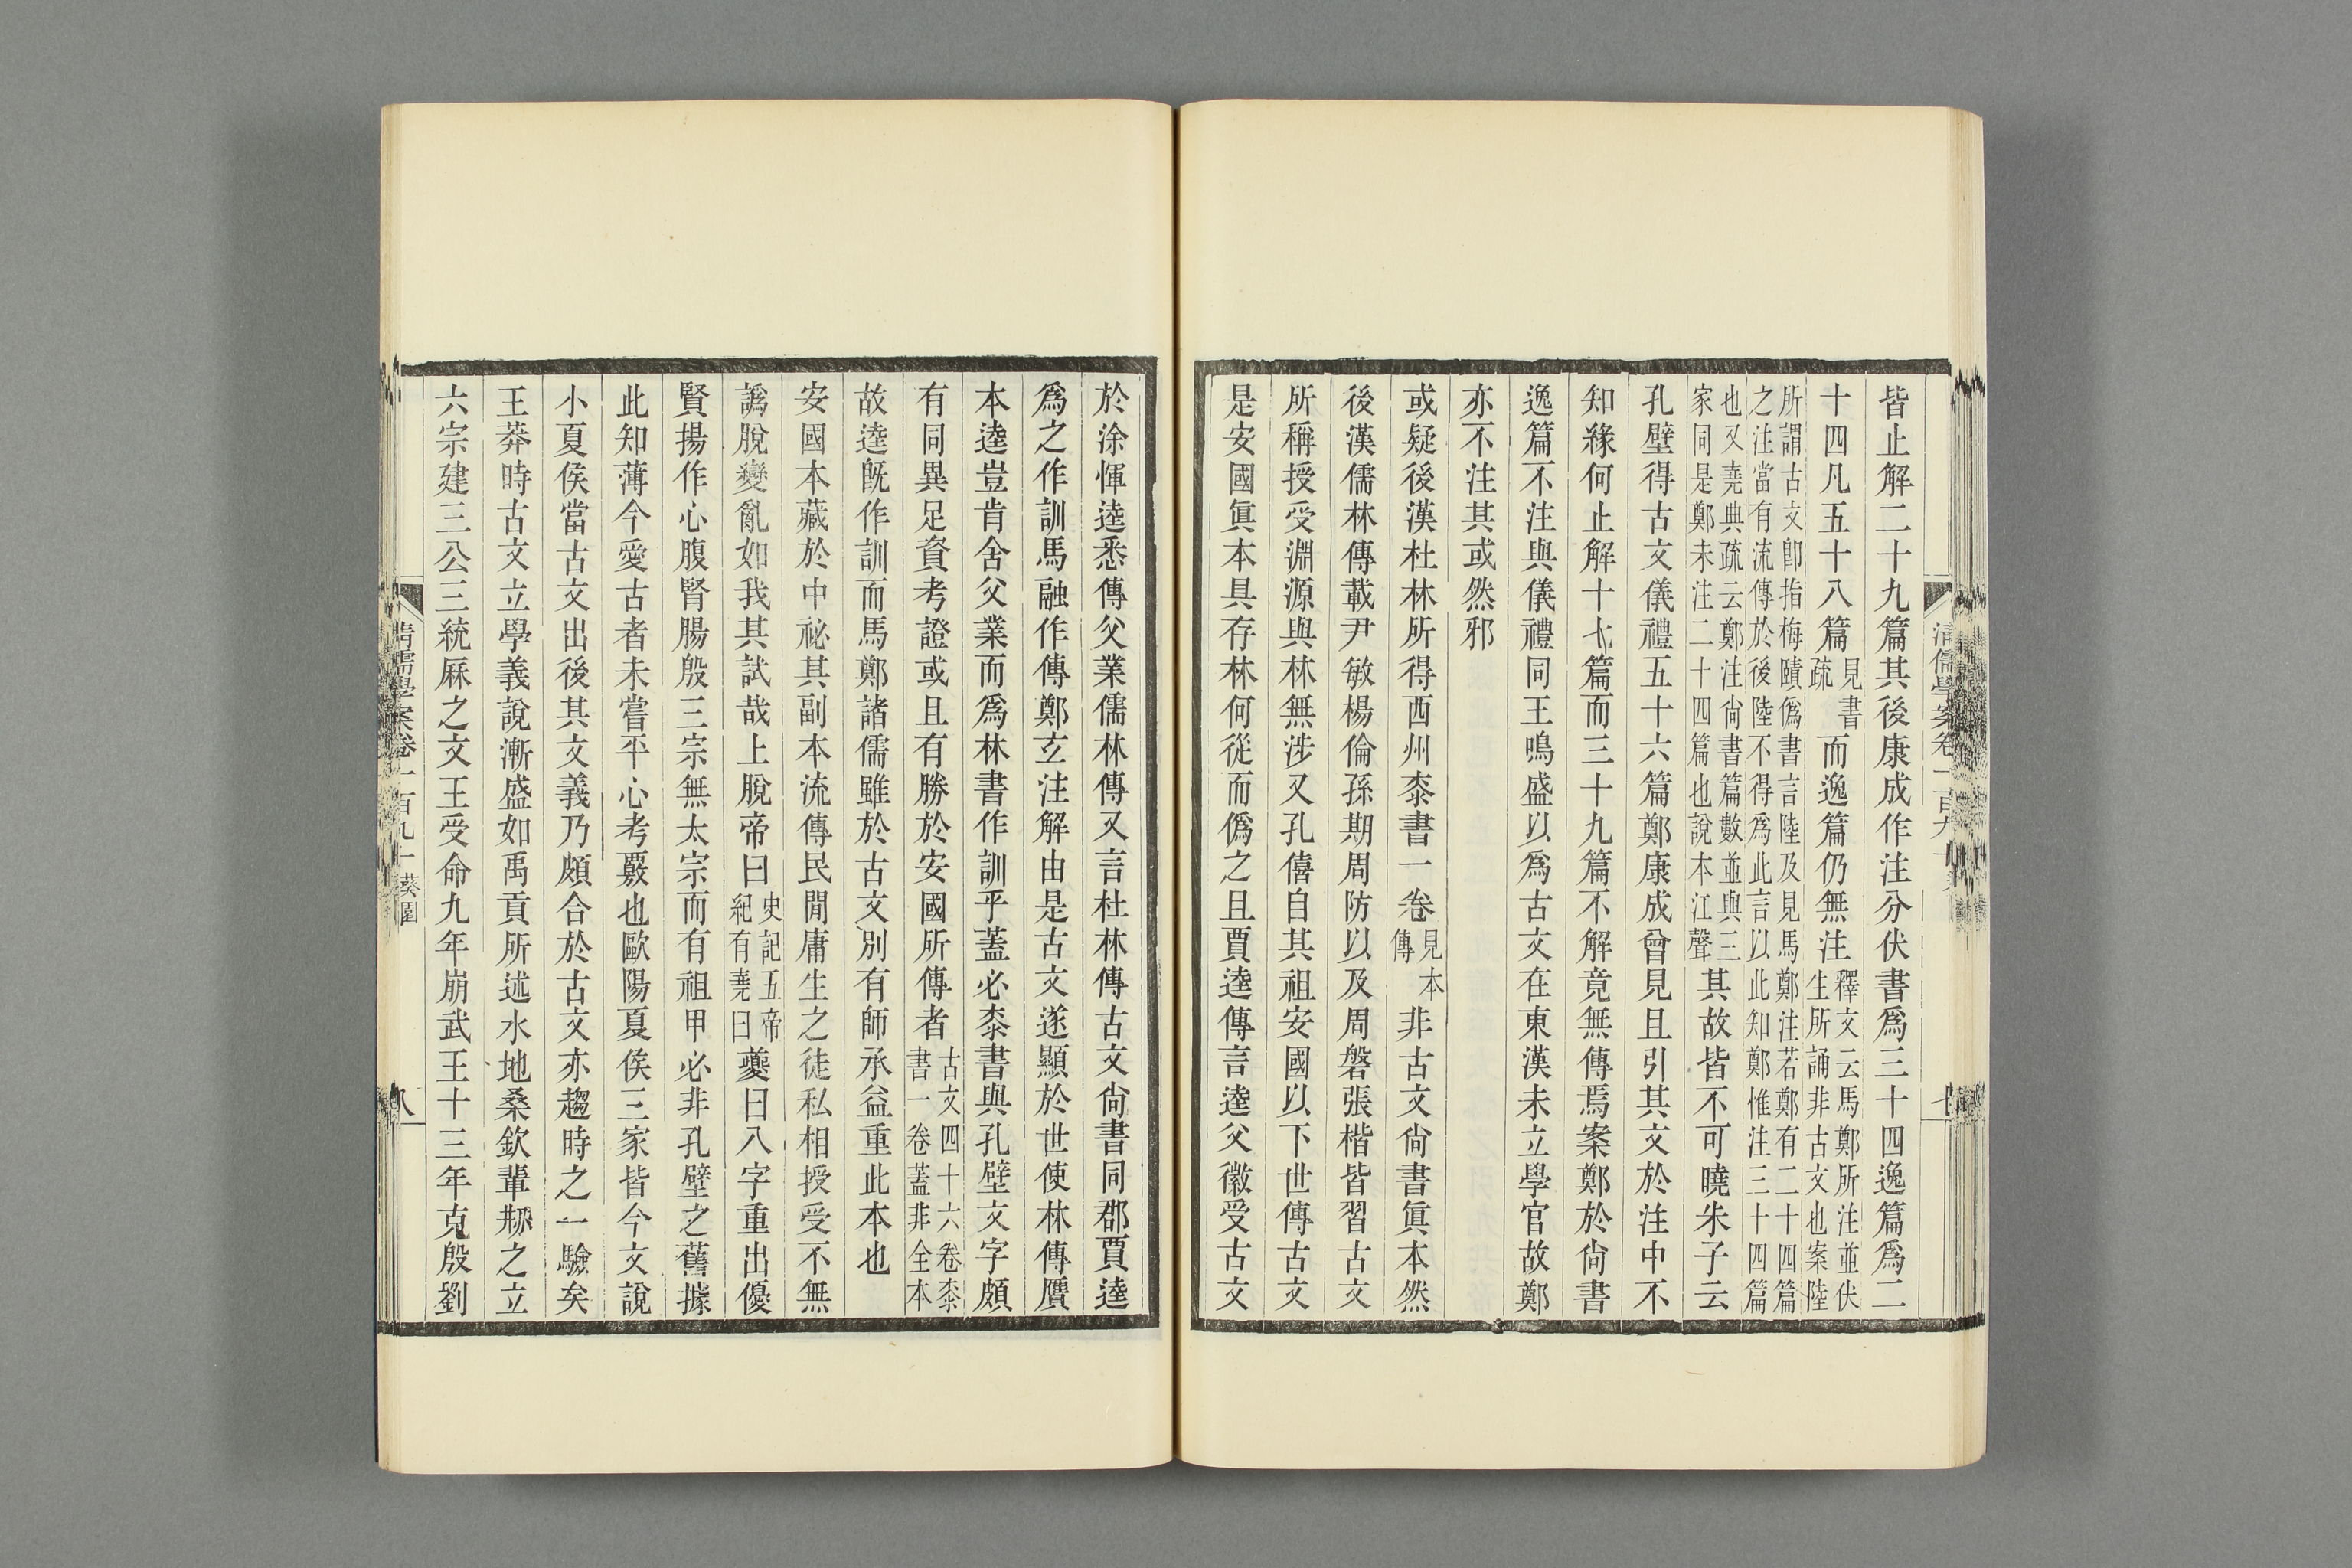 皆止解二十九篇其後康成作注分伏書爲三十四逸篇爲二
十四凡五十八篇見書疏而逸篇仍無注釋文云馬鄭所注並伏生所誦非古文也案陸
所謂古文卽指梅賾僞書言陸及見馬鄭注若鄭有二十四篇之注當有流傳於後陸不得爲此言以此知鄭惟注三十四篇
也又堯典疏云鄭注尙書篇數並與三家同是鄭未注二十四篇也說本江聲其故皆不可曉朱子云
孔壁得古文儀禮五十六篇鄭康成曾見且引其文於注中不
知緣何止解十七篇而三十九篇不解竟無傳焉案鄭於尙書
逸篇不注與儀禮同王鳴盛以爲古文在東漢未立學官故鄭
亦不注其或然邪
或疑後漢杜林所得西州桼書一卷見本傳非古文尙書眞本然
後漢儒林傳載尹敏楊倫孫期周防以及周磐張楷皆習古文
所稱授受淵源與林無涉又孔僖自其祖安國以下世傳古文
是安國眞本具存林何從而僞之且賈逵傳言逵父徽受古文
於涂惲逵悉傳父業儒林傳又言杜林傳古文尙書同郡賈逵
爲之作訓馬融作傳鄭玄注解由是古文遂顯於世使林傳贗
本逵豈肯舍父業而爲林書作訓乎蓋必桼書與孔壁文字頗
有同異足資考證或且有勝於安國所傳者古文四十六卷桼書一卷蓋非全本
故逵旣作訓而馬鄭諸儒雖於古文別有師承益重此本也
安國本藏於中祕其副本流傳民閒庸生之徒私相授受不無
譌脫變亂如我其試哉上脫帝曰史記五帝紀有堯曰夔曰八字重出優
賢揚作心腹腎腸殷三宗無太宗而有祖甲必非孔壁之舊據
此知薄今愛古者未嘗平心考覈也歐陽夏侯三家皆今文說
小夏侯當古文出後其文義乃頗合於古文亦趨時之一驗矣
王莽時古文立學義說漸盛如禹貢所述水地桑欽輩刱之立
六宗建三公三統厤之文王受命九年崩武王十三年克殷劉
清儒學案卷一百九十 葵園
八